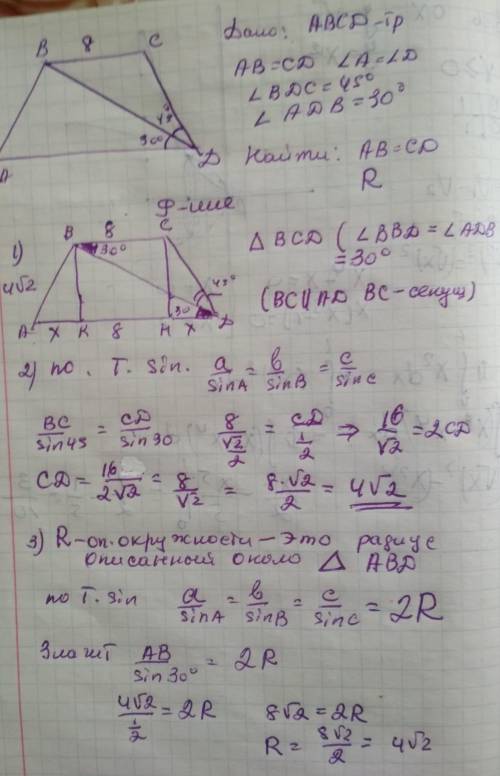 Дано: ABCD-тр
AB=CD ∠A=∠D
∠BDC=45°
∠ADB=30°
Найти: AB=CD
R
B 8 C
45°
30°
A D
1)
B 8 C
30°
4√2
45°
30
A x K 8 H x D
△ BCD (∠BBD = ∠ADB
=30°
(BC||AD BC-секущ)
2) по. Т. sin. a/sinA = b/sinB = c/sinC
BC/sin45 = CD/sin30 8/(√2/2) = CD/(1/2) ⇒ 16/√2 = 2CD
CD = 16/2√2 = 8/√2 = 8·√2/2 = 4√2
3) R-оп.окружности-это радиус
описанный около △ ABD
по Т. sin a/sinA = b/sinB = c/sinC = 2R
Значит AB/sin30° = 2R
4√2/(1/2) = 2R 8√2 = 2R
R = 8√2/2 = 4√2